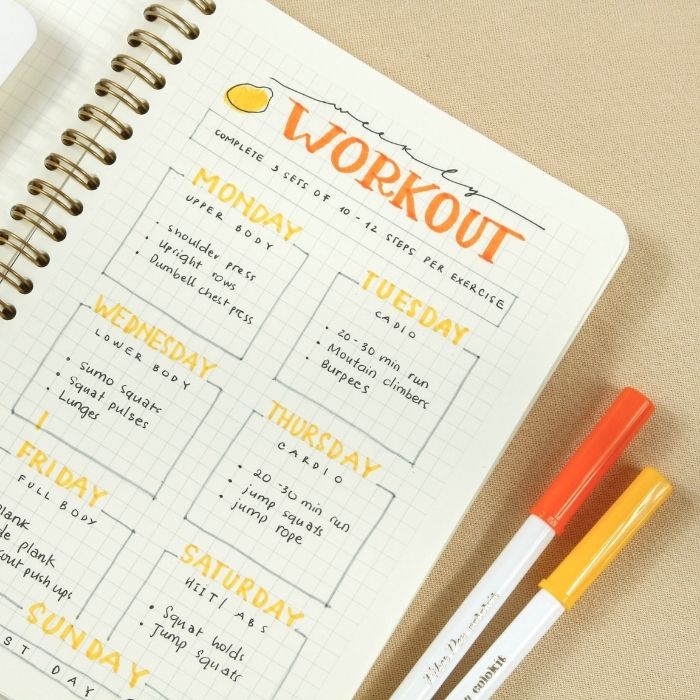 weekly
WORKOUT
COMPLETE 3 SETS OF 10-12 STEPS PER EXERCISE
MONDAY
UPPER BODY
• shoulder press
• Upright rows
• Dumbell chest press
TUESDAY
CADIO
• 20-30 min run
• Moutain climbers
• Burpees
WEDNESDAY
LOWER BODY
• Sumo squats
• Squat pulses
• Lunges
THURSDAY
CARDIO
• 20-30 min run
• jump squats
• jump rope
FRIDAY
FULL BODY
plank
plank
push ups
SATURDAY
HIIT/ABS
• Squat holds
• Jump squats
SUNDAY
DAY